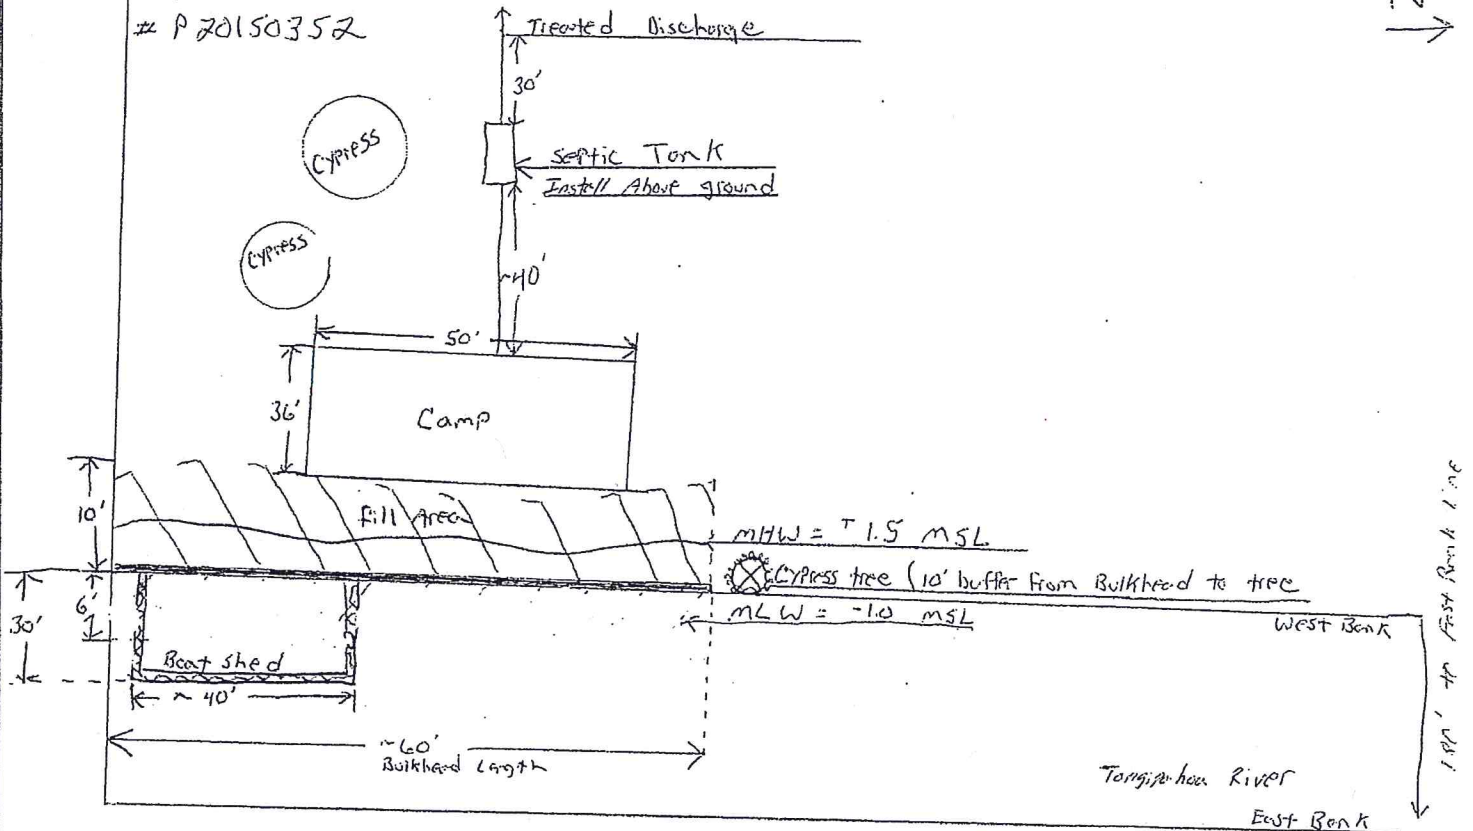 # P20150352
Treated Discharge
30'
Cypress
Septic Tank
Install Above ground
Cypress
~40'
50'
36'
Camp
10'
Fill Area
MHW = + 1.5 MSL
Cypress tree (10' buffer from Bulkhead to tree
MLW = -1.0 MSL
West Bank
6'
30'
Boat shed
~ 40'
~60'
Bulkhead Length
to East Bank Line
Tangipahoa River
East Bank